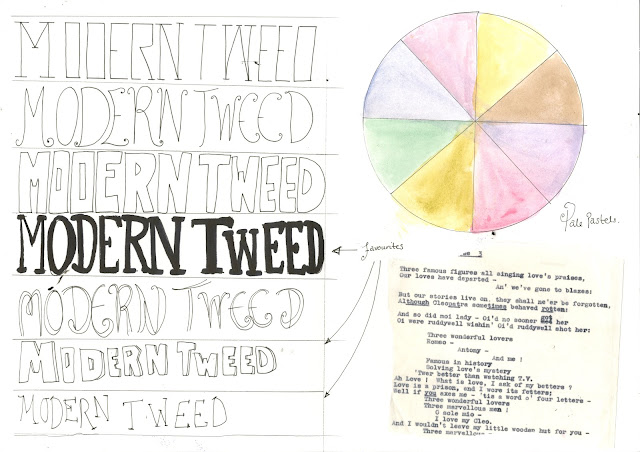 MODERN TWEED.
MODERN TWEED
MODERN TWEED
MODERN TWEED
MODERN TWEED
MODERN TWEED
MODERN TWEED
favourites
Pale Pastels.
3
Three famous figures all singing love's praises,
Our loves have departed -
An' we've gone to blazes:
But our stories live on, they shall ne'er be forgotten,
Although Cleopatra sometimes behaved rotten:
And so did moi lady - Oi'd no sooner got her
Oi were ruddywell wishin' Oi'd ruddywell shot her:
Three wonderful lovers
Romeo -
Antony -
And me !
Famous in history
Solving love's mystery
'Twer better than watching T.V.
Ah Love ! What is love, I ask of my betters ?
Love is a prison, and I wore its fetters;
Well if you axes me - 'tis a word o' four letters -
Three wonderful lovers
Three marvellous men !
O sole mio -
I love my Cleo.
And I wouldn't leave my little wooden hut for you -
Three marvellous -